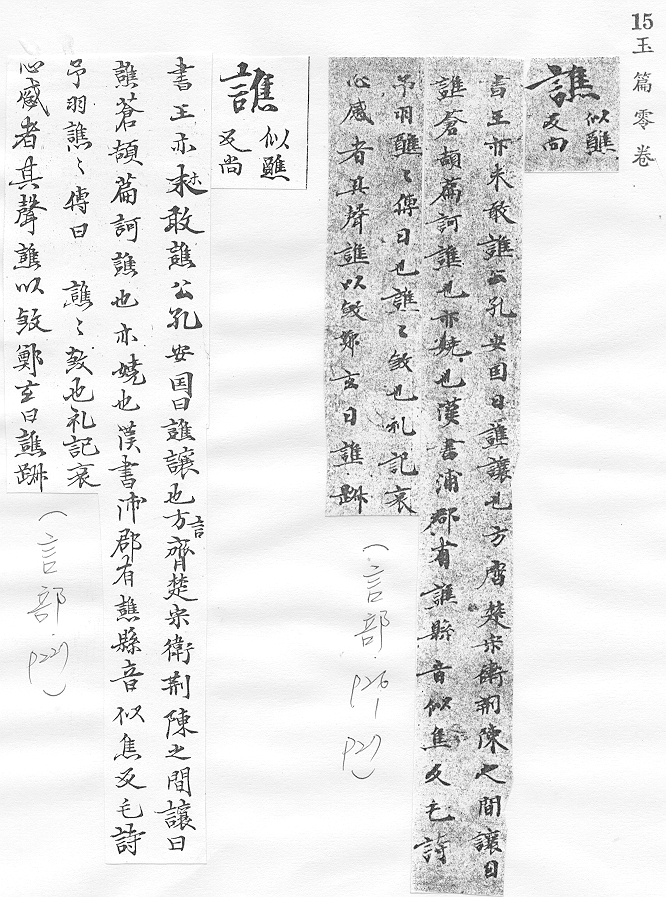 15玉篇零卷
譙似醮
反尚
書王亦未敢譙公孔安囯曰譙讓也方齊楚宋衛荊陳之間讓曰
譙蒼頡篇訶譙也亦嬈也漢書浦郡有譙縣音似焦反毛詩
予羽譙〻傳曰也譙〻殺也礼記哀
心感者其聲譙以殺鄭玄曰譙踧
(言部 p26-p27)
譙似醮
反尚
書王亦未敢譙公孔安囯曰譙讓也方言齊楚宋衛荊陳之間讓曰
譙蒼頡篇訶譙也亦嬈也漢書沛郡有譙縣音似焦反毛詩
予羽譙〻傳曰 譙〻殺也礼記哀
心感者其聲譙以殺鄭玄曰譙踧
(言部 p227)